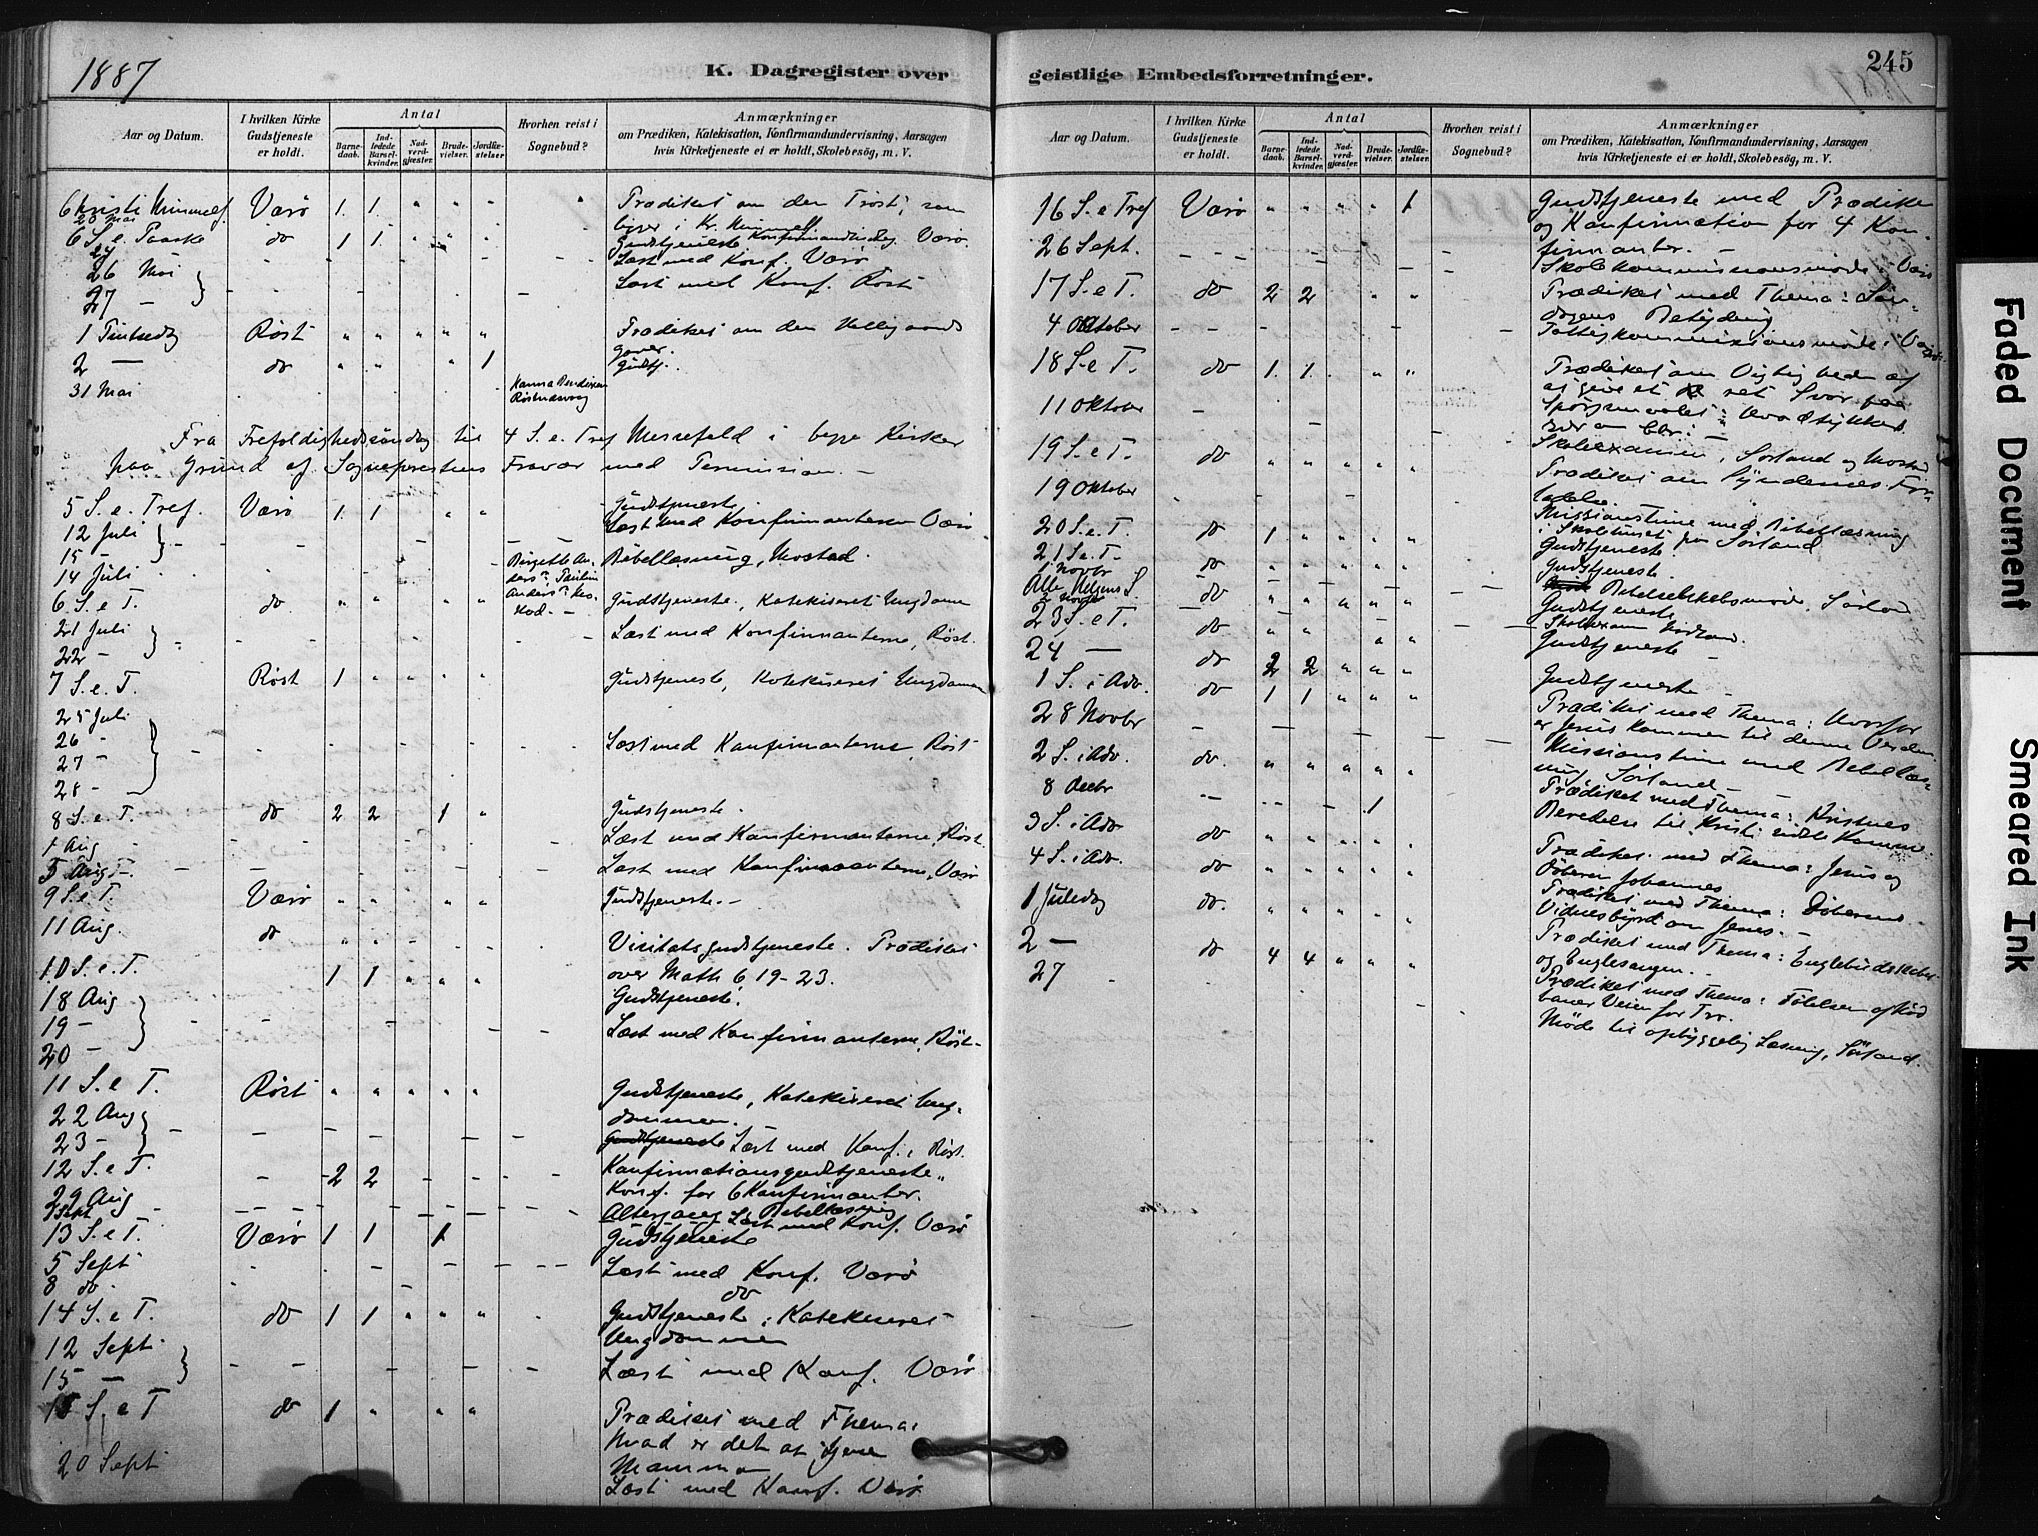 1887
K. Dagregister over
Aar og Datum.
I hvilken Kirke Gudstjeneste er holdt.
Antal
Barne-daab.
Ind-ledede Barsel-kvinder.
Nad-verd-gjæster.
Brude-vielser.
Jordfæ-stelser.
Hvorhen reist i Sognebud?
Anmærkninger
om Prædiken, Katekisation, Konfirmandundervisning, Aarsagen
hvis Kirketjeneste ei er holdt, Skolebesög, m. V.
Kristi Himmelf. Værö 1. 1. " " " Prædiket om den Tröst, som
20 Mai ligger i Kr. Himmelf.
6 S. e. Paaske do 1 1. " " Gudstjeneste Værö
26 Mai - Læst med Konf. Værö
27 - Læst med Konf. Röst
1 Pintsedag Röst " " " " " Prædiket om den Helligaands
gaver.
2 — do " " " 1 Gudstj.
31 Mai Hanna Bendiksen
Fra Trefoldighedssöndag til 4 S. e. Tref Messefald i begge Kirker
paa Grund af Sogneprestens Fravær med Permission. -
5 S. e. Tref. Værö 1. 1 " " Gudstjeneste
12 Juli Læst med Konfirmanterne Værö
15 -
14 Juli Birgitte An- Bibellæsning, Mostad.
6 S. e T. do " " " " Gudstjeneste, Katekiseret Ungdomm
21 Juli Læst med Konfirmanterne, Röst.
22 -
7 S. e. T. Röst 1 " " " " Gudstjeneste, Katekiseret Ungdommen
25 Juli
26 -
27 - Læst med Konfirmanterne, Röst
28 -
8 S. e. T. do 2 2 1 " Gudstjeneste.
1 Aug Læst med Konfirmanterne, Röst.
5 Aug Læst med Konfirmanterne, Værö
9 S. e T. Værö " " " " Gudstjeneste. -
11 Aug. do " " " Visitatsgudstjeneste. Prædiket
over Math 6, 19-23.
10 S. e. T. 1 1 " " " Gudstjeneste.
18 Aug
19 - Læst med Konfirmanterne, Röst-
20 -
11 S. e T. Röst " " " " " Gudstjeneste, Katekiseret Ung-
dommen.
22 Aug
23 - Gudstjeneste Læst med Konf. i Röst.
12 S. e T. - 2 2 - - - Konfirmationsgudstjeneste,
Konf. for 6 Konfirmanter.
29 Aug Altergang Bibellæsning
Læst med Konf. Værö
13 S. e T. Værö 1 1 1 Gudstjeneste
5 Sept Læst med Konf. Værö
8 do do
14 S. e T. do 1 1 " " " Gudstjeneste, Katekiseret
Ungdommen
12 Sept
15 — Læst med Konf. Værö
15 S. e T do 1 " " " Prædiket med Thema:
Hvad er det at tjene
Mammon
20 Sept Læst med Konf. Værö
geistlige Embedsforretninger.
245
Aar og Datum.
I hvilken Kirke Gudstjeneste er holdt.
Antal
Barne-daab.
Ind-ledede Barsel-kvinder.
Nad-verd-gjæster.
Brude-vielser.
Jordfæ-stelser.
Hvorhen reist i Sognebud?
Anmærkninger
om Prædiken, Katekisation, Konfirmandundervisning, Aarsagen
hvis Kirketjeneste ei er holdt, Skolebesög, m. V.
16 S. e Tref Værö " " " " 1 Gudstjeneste med Prædiken
og Konfirmation for 4 Kon-
firmanter. -
26 Sept. - - - Skolekommissionsmöde i Værö
17 S. e T. do 2 2 " " Prædiket med Thema: Sön-
dagens Betydning
4 Oktober - - - Fattigkommissionsmöde i Værö
18 S. e T. do 1. 1. " " Prædiket om Vigtigheden af
at give et ret Svar paa
Spörgsmaalet: Hvad tykkes
Eder om Chr. -
11 Oktober - Skoleexamen, Sörland og Mostad
19 S. e T. do " " " " " Prædiket om Syndernes For-
ladelse.
19 Oktober Missionstime med Bibellæsning
i Skolehuset paa Sörland
20 S. e. T. do 1 " " " " Gudstjeneste
21 S. e T. do " " " " " Gudstjeneste.
1 Novbr Bibelselskabsmöde, Sörland
Alle Helgens S. do " " " " " Gudstjeneste
2 Novbr Skoleexam
23 S. e T. do " " " " Gudstjeneste
24 — do 2 2 " " " Gudstjeneste -
1 S. i Adv. do 1 1 " " " Prædiket med Thema: Hvorfor
er Jesus kommen til denne Verden
28 Novbr - Missionstime med Bibellæs-
ning, Sörland -
2 S. i Adv. do. " " " " " Prædiket med Thema: Kristnes
Beredelse til Kristi sidste Komme
8 Decbr - -- - 1
3 S. i Adv do " " " " " Prædiket med Thema: Jesus og
Döberen Johannes
4 S. i Adv. do " " " " " Prædiket med Thema: Döberens
Vidnesbyrd om Jesus. -
1 Juledag do. " " " " " Prædiket med Thema: Englebudskabet
og Englesangen.
2 — do 4 4 " " " Prædiket med Thema: Fölelsen af Nöd
baner Veien for Tro.
27 Möde til opbyggelig Læsning, Sörland.
Faded Document
Smeared Ink